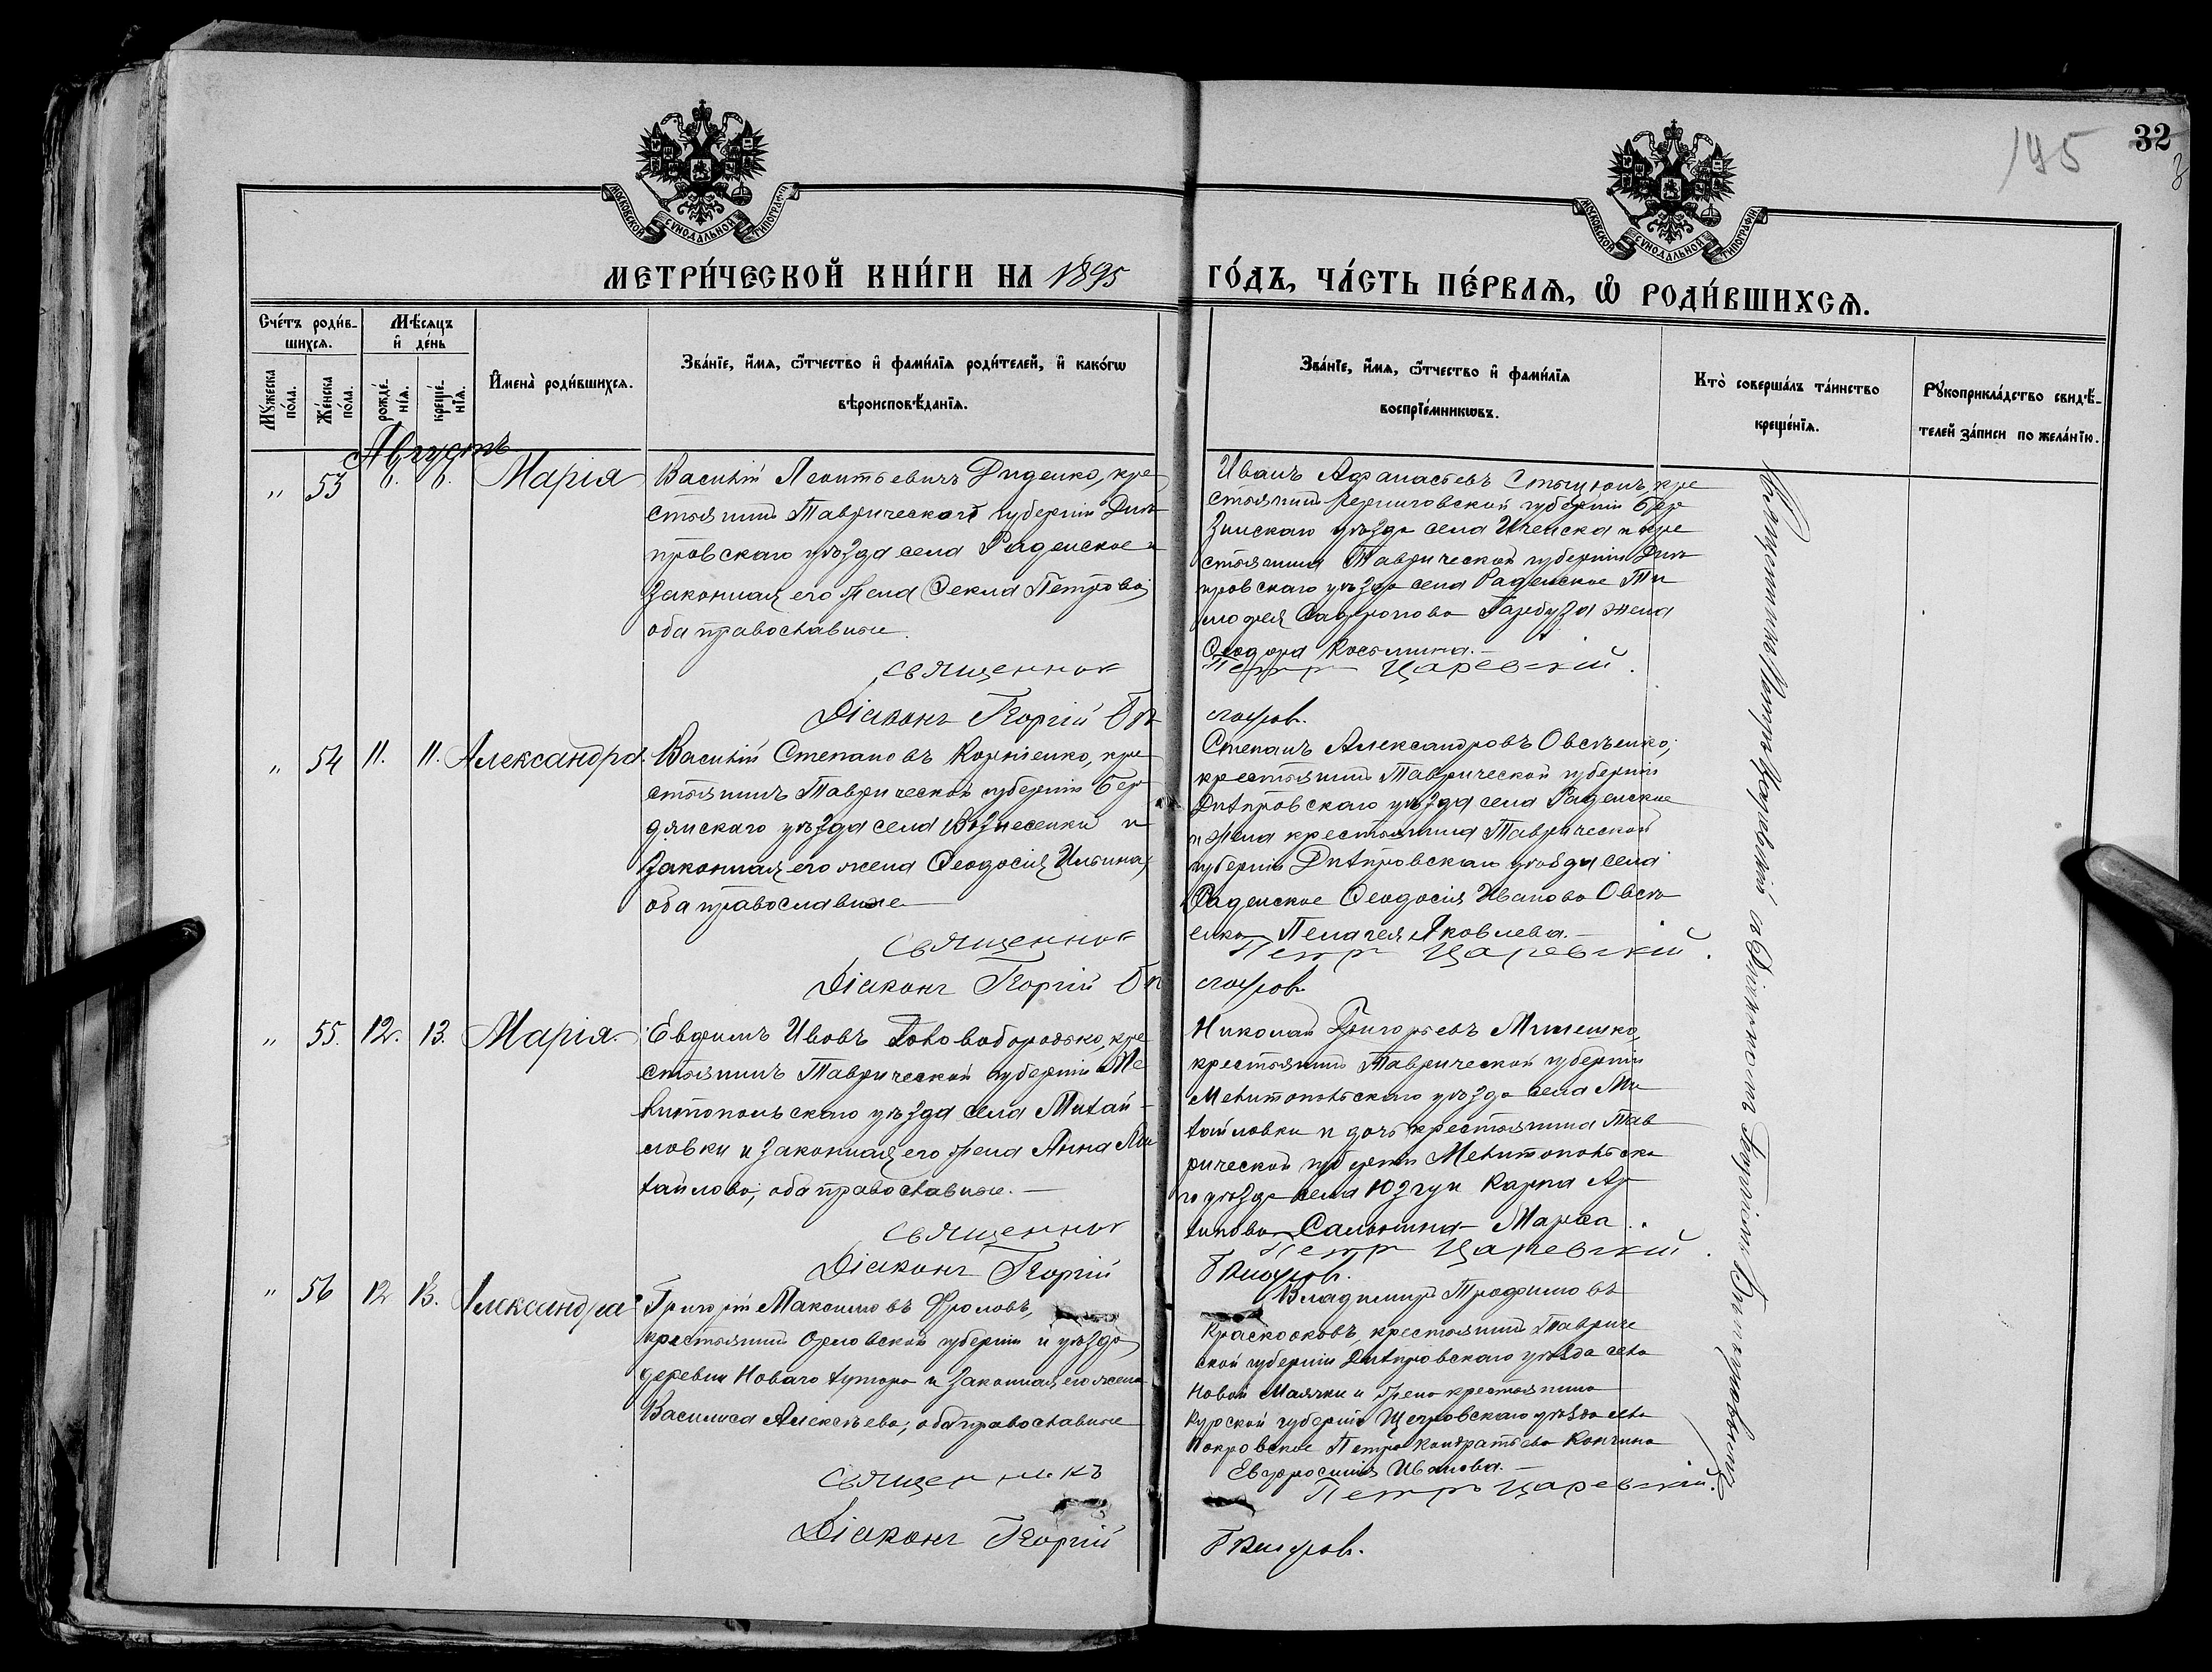 145
32
МОСКОВСКОЙ СУНОДАЛЬНОЙ ТИПОГРАФІИ
МОСКОВСКОЙ СУНОДАЛЬНОЙ ТИПОГРАФІИ
МЕТРИ́ЧЕСКОЙ КНИ́ГИ НА 1895
ГО́ДЪ, ЧА́СТЬ ПЕ́РВАѦ, Ѡ҆ РОДИ́ВШИХСѦ.
Сче́тъ роди́в-
шихсѧ.
Мѣ́сѧцъ
и҆ де́нь
Му́жеска
по́ла.
Же́нска
по́ла.
рожде́-
нїѧ.
креще́-
нїѧ.
И҆мена̀ роди́вшихсѧ.
Зва́нїе, и҆́мѧ, ѻ҆́тчество и҆ фами́лїѧ роди́телей, и҆ како́гѡ
вѣроисповѣ́данїѧ.
Зва́нїе, и҆́мѧ, ѻ҆́тчество и҆ фами́лїѧ
воспрїе́мникѡвъ.
Кто̀ соверша́лъ та́инство
креще́нїѧ.
Рꙋкоприкла́дство свидѣ́-
телей за́писи по жела́нїю.
Августъ
„ 53 6. 6. Марія
Василій Леонтьевичъ Диденко, кре
стьянинъ Таврической губерніи Днѣ
провскаго уѣзда села Раденское и
законная его жена Ѳекла Петрова,
оба православные.
Священник
Діаконъ Георгій
Иванъ Аѳанасьевъ кре
стьянинъ Черниговской губерніи Бор
зинскаго уѣзда села Иченска и кре
стьянина Таврической губерніи Днѣ
провскаго уѣзда села Раденское Ти
моѳея Сафронова Гарбуза жена
Ѳеодора Косьмина.—
Петр Царевскій.
„ 54 11. 11. Александра.
Василій Степановъ Корніенко, кре
стьянинъ Таврической губерніи Бер
дянскаго уѣзда села Вознесенки и
законная его жена Ѳеодосія Ильина,
оба православные
Священник
Діаконъ Георгій
Степанъ Александровъ Овсѣенко,
крестьянинъ Таврической губерніи
Днѣпровскаго уѣзда села Раденское
и жена крестьянина Таврической
губерніи Днѣпровскаго уѣзда села
Раденское Ѳеодосія Иванова Овсѣ
енко Пелагея Яковлева.—
Петр Царевскій.
„ 55. 12. 13. Марія.
Евфимъ Ивовъ кре
стьянинъ Таврической губерніи Ме
литопольскаго уѣзда села Михай-
ловки и законная его жена Анна Ми
хайлова, оба православные.—
Священник
Діаконъ Георгій
Николай Григорьевъ Мишешко,
крестьянинъ Таврической губерніи
Мелитопольскаго уѣзда села Ми
хайловки и дочь крестьянина Тав
рической губерніи Мелитопольска
го уѣзда села Юзгуи Карпа Ар
хипова Марѳа.
Петр Царевскій.
„ 56 12 13. Александра
Григорій Максимовъ Фроловъ,
крестьянинъ Орловской губерніи и уѣзда
деревни Новаго хутора и законная его жена
Василиса Алексѣева, оба православные
Священникъ
Діаконъ Георгій
Владимиръ Трофимовъ
Краскосковъ, крестьянинъ Тавриче
ской губерніи Днѣпровскаго уѣзда села
Новой Маячки и жена крестьянина
Курской губерніи Щегровскаго уѣзда села
Покровское Петра Кондратьева
Евфросинія Иванова.—
Петръ Царевскій.
Священникъ Петръ Царевскій съ Діакономъ Георгіемъ